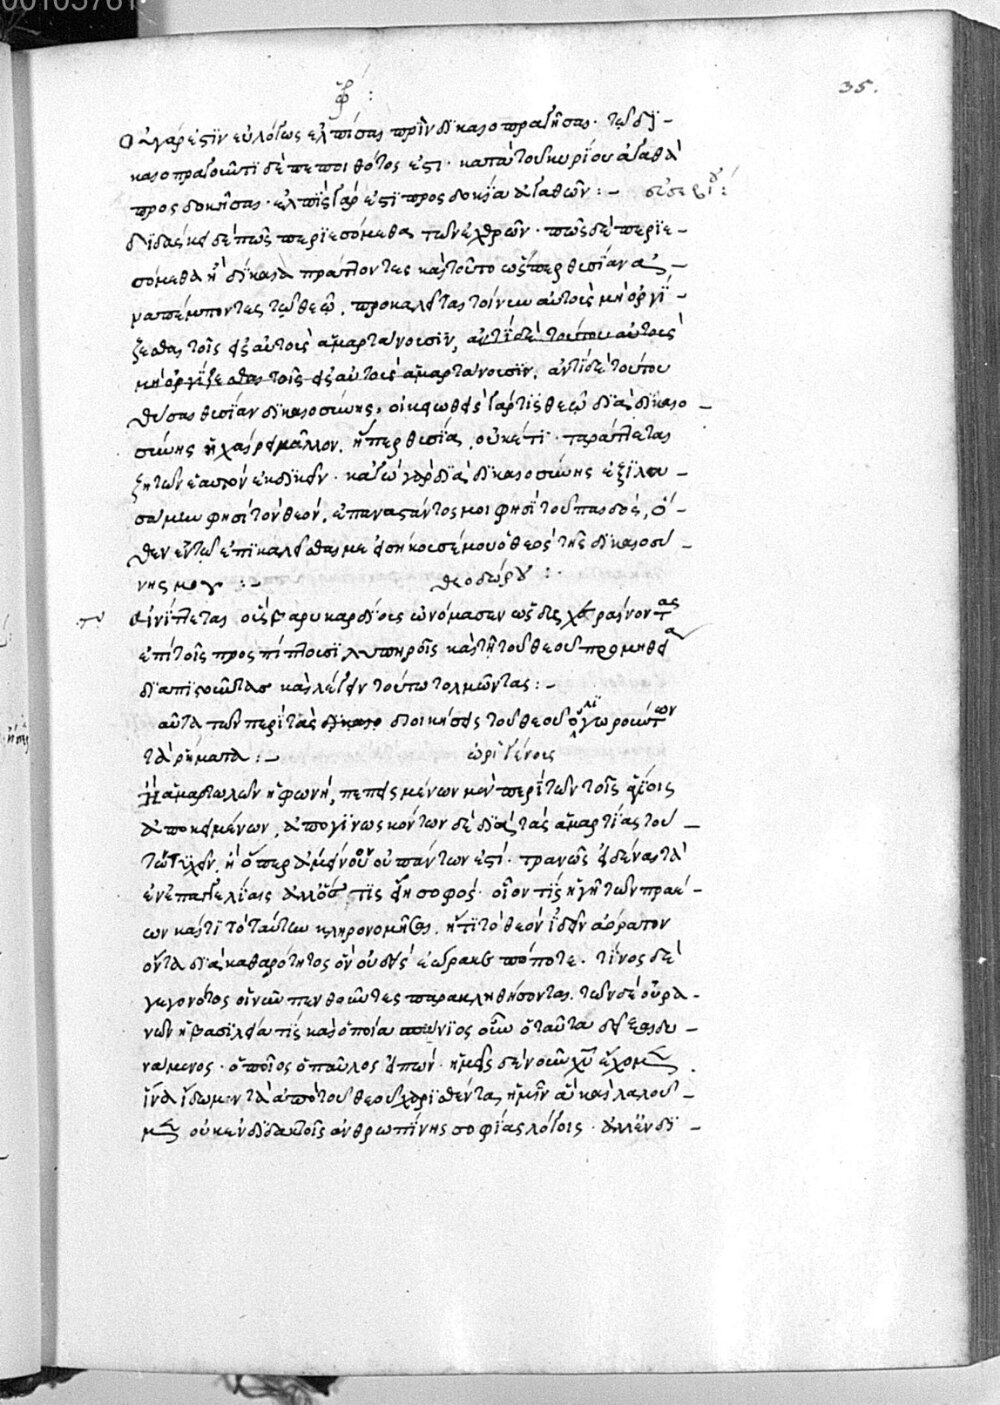 35.
Οὐ γάρ ἐστϊν εὐλόγως ἐλπίσαι πρὶν δϊκαιοπραγῆσαι· τῷ δϊ-
καιοπραγοῦντϊ δὲ πεποιθότος ἐστι· κἀπὶ τοῦ κυρίου ἀγαθὰ
προσδοκῆσαι· ἐλπὶς γάρ ἐστϊ προσδοκία ἀγαθῶν :-
διδάσκει δὲ πῶς περϊεσόμεθα τῶν ἐχθρῶν· πῶς δὲ περϊε-
σόμεθα ἢ δίκαια πράττοντες καὶ τοῦτο ὥσπερ θυσίαν
πέμποντες τῷ θεῷ. προκαλεῖται τοίνυν αὐτοὺς μὴ ὀργϊ-
ζεσθαι τοῖς εἰς αὐτοὺς ἁμαρτάνουσϊν, ἀντὶ δὲ τούτου αὐτοὺς
μὴ ὀργϊζεσθαι τοῖς εἰς αὐτοὺς ἁμαρτάνουσϊν. ἀντὶ δὲ τούτου
θῦσαι θυσίαν δϊκαιοσύνης, οἰκειωθεὶς γάρ τις θεῷ διὰ δϊκαιο-
σύνης ἢ χαίρει μᾶλλον, ἤπερ θυσία, οὐκέτϊ ταράττεται
ζητῶν ἑαυτὸν ἐκδϊκεῖν· κἀγὼ γὰρ δϊὰ δϊκαιοσύνης ἐξϊλεω-
σάμην φησὶ τὸν θεόν, ἐπαναστάντος μοι φησὶ τοῦ παιδός, ὅ-
θεν ἐν τῷ ἐπϊκαλεῖσθαι με εἰσήκουσέ μου ὁ θεὸς τῆς δϊκαιοσύ-
νης μου :- θεοδώρου :·
Αἰνίττεται οὓς βαρυκαρδίους ὠνόμασεν ὡς δυσχεραίνοντας
ἐπὶ τοῖς προσπίπτουσϊ λυπηροῖς καὶ τῇ τοῦ θεοῦ προμηθείᾳ
δϊαπιστοῦντας καὶ λέγειν τοῦτο τολμῶντας :-
αὗται τῶν περὶ τὰς διοικήσεις τοῦ θεοῦ ὀλϊγωρούντων
τὰ ῥήματα :- ὠριγένους
Ἡ ἁμαρτωλῶν ἡ φωνή, πεπεισμένων μὲν περὶ τῶν τοῖς ἁγίοις
ἀποκειμένων, ἀπογϊνωσκόντων δὲ δϊὰ τὰς ἁμαρτίας τοῦ
τυχεῖν, ἢ ὅπερ ἄμεινον οὐ πάντων ἐστί· τρανῶς εἰδέναι τὰ
ἐν ἐπαγγελίαις ἀλλ' ὅς τϊς ᾖ σοφός· οἷον τίς ἡ γῆ τῶν πραέ-
ων καὶ τί τὸ ταύτην κληρονομῆσαι. ἢ τί τὸ θεὸν ἰδεῖν ἀόρατον
ὄντα διὰ καθαρότητος ὃν οὐδεὶς ἑώρακε πώποτε. τίνος δὲ
γεγονότος οἱ νῦν πενθοῦντες παρακληθήσονται. τῶν δὲ οὐρα-
νῶν ἡ βασϊλεία τίς καὶ ὁποία τίς οὖν ὁ ταῦτα δεῖξαι δυ-
νάμενος· ὁποῖος ὁ παῦλος εἰπών· ἡμεῖς δὲ νοῦν χυ ἔχομεν
ἵνα ἴδωμεν τὰ ἀπὸ τοῦ θεοῦ χαρϊσθέντα ἡμῖν ἃ καὶ λαλοῦ-
μεν οὐκ ἐν διδακτοῖς ἀνθρωπίνης σοφίας λόγοις· ἀλλ' ἐν δϊ-